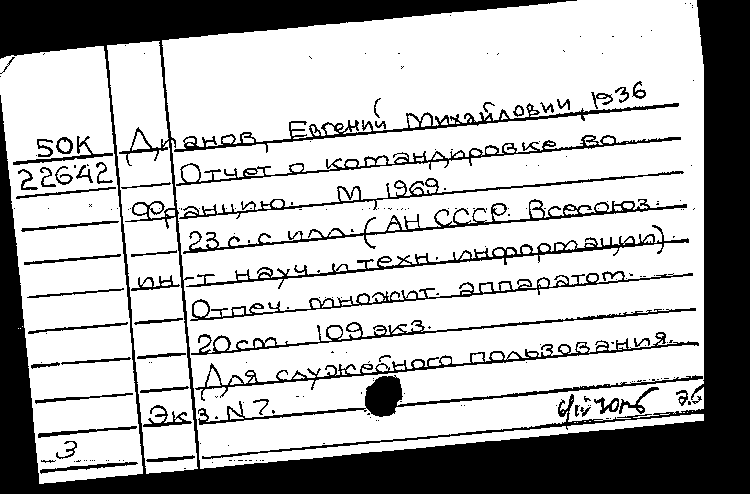 50К Дианов, Евгений Михайлович, 1936
22642 Отчет о командировке во
Францию. М, 1969.
23 с. с илл. (АН СССР. Всесоюз.
ин-т науч. и техн. информации).
Отпеч. множит. аппаратом.
20 см. 109 экз.
Для служебного пользования.
Экз. N 7.
3